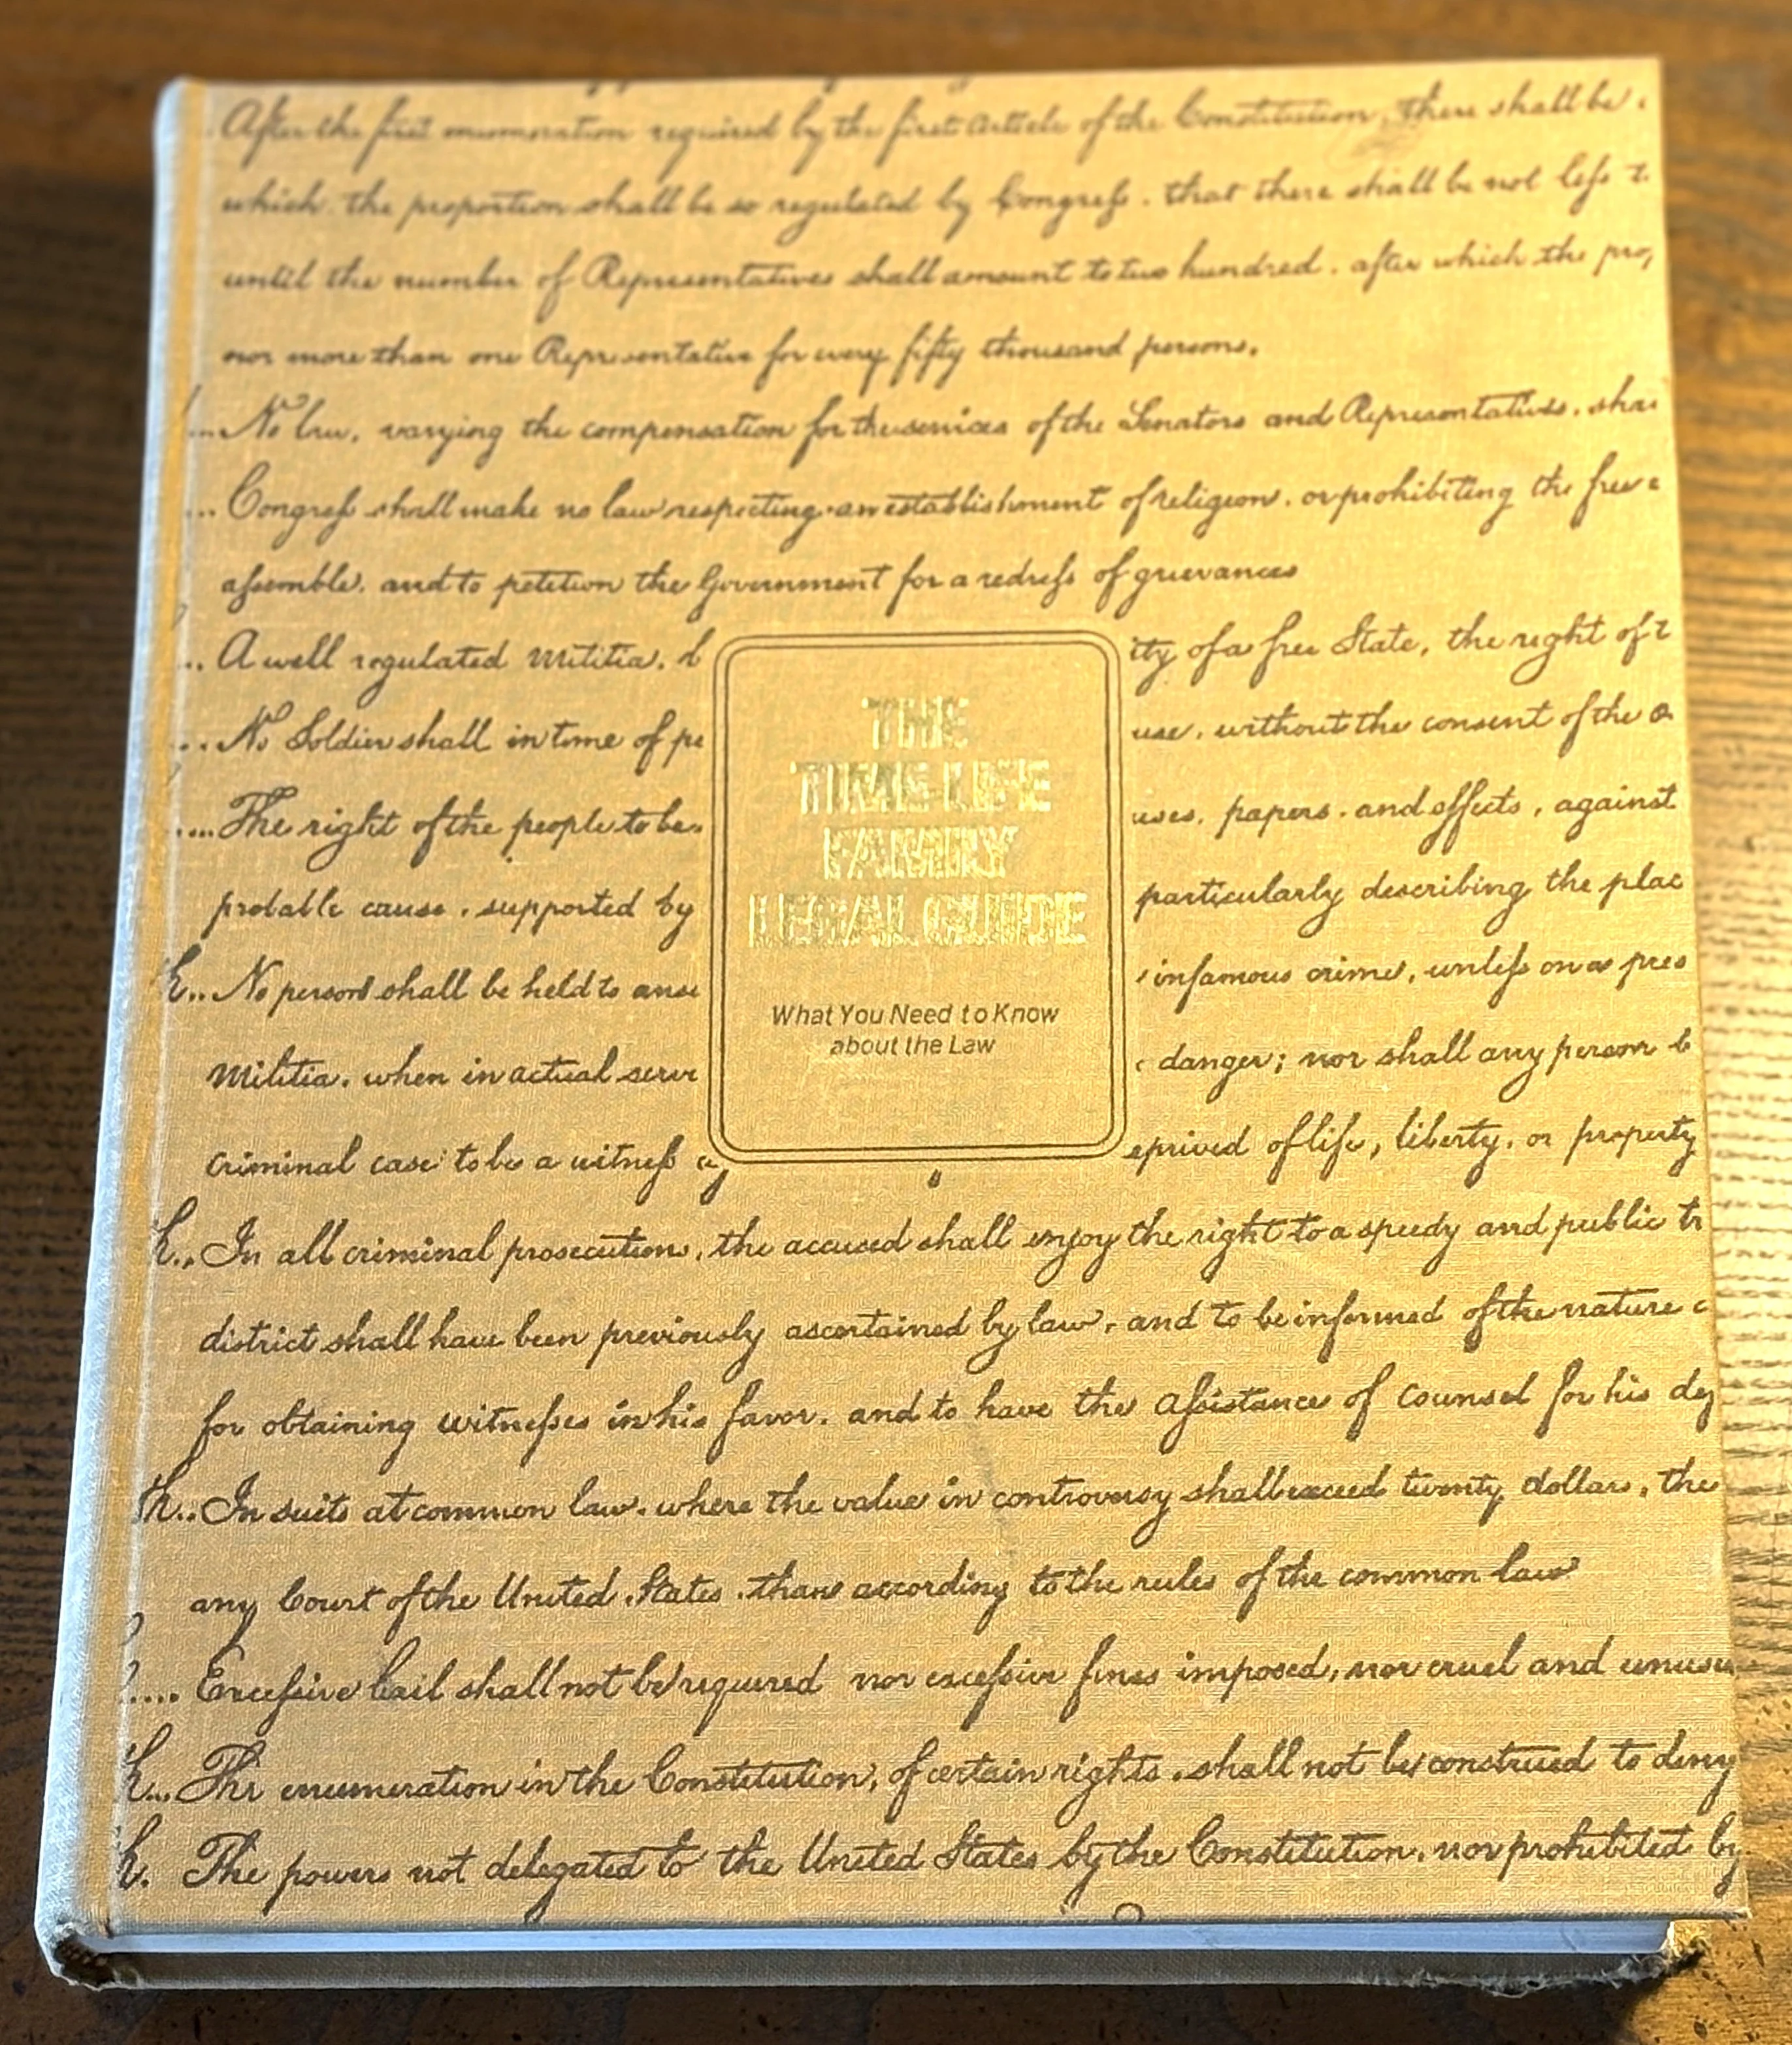 After the first enumeration required by the first Article of the Constitution, there shall be
which, the proportion shall be so regulated by Congress, that there shall be not less
until the number of Representatives shall amount to two hundred, after which the
nor more than one Representative for every fifty thousand persons.
No law, varying the compensation for the services of the Senators and Representatives,
... Congress shall make no law respecting an establishment of religion, or prohibiting the free
assemble, and to petition the Government for a redress of grievances
.. A well regulated Militia, b
ity of a free State, the right of t
.. No Soldier shall in time of pe
use, without the consent of the O
.... The right of the people to be
uses, papers, and effects, against
probable cause, supported by
particularly describing the plac
h.. No person shall be held to answ
infamous crime, unless on a pres
Militia, when in actual serv
danger; nor shall any person b
criminal case to be a witness ag
eprived of life, liberty, or property
THE
TIME-LIFE
FAMILY
LEGAL GUIDE
What You Need to Know
about the Law
h.. In all criminal prosecutions, the accused shall enjoy the right to a speedy and public tr
district shall have been previously ascertained by law, and to be informed of the nature
for obtaining witnesses in his favor, and to have the Assistance of Counsel for his def
th.. In suits at common law, where the value in controversy shall exceed twenty dollars, the
any Court of the United States, than according to the rules of the common law
.... Excessive bail shall not be required nor excessive fines imposed, nor cruel and unusu
h... The enumeration in the Constitution, of certain rights, shall not be construed to deny
h. The powers not delegated to the United States by the Constitution, nor prohibited by